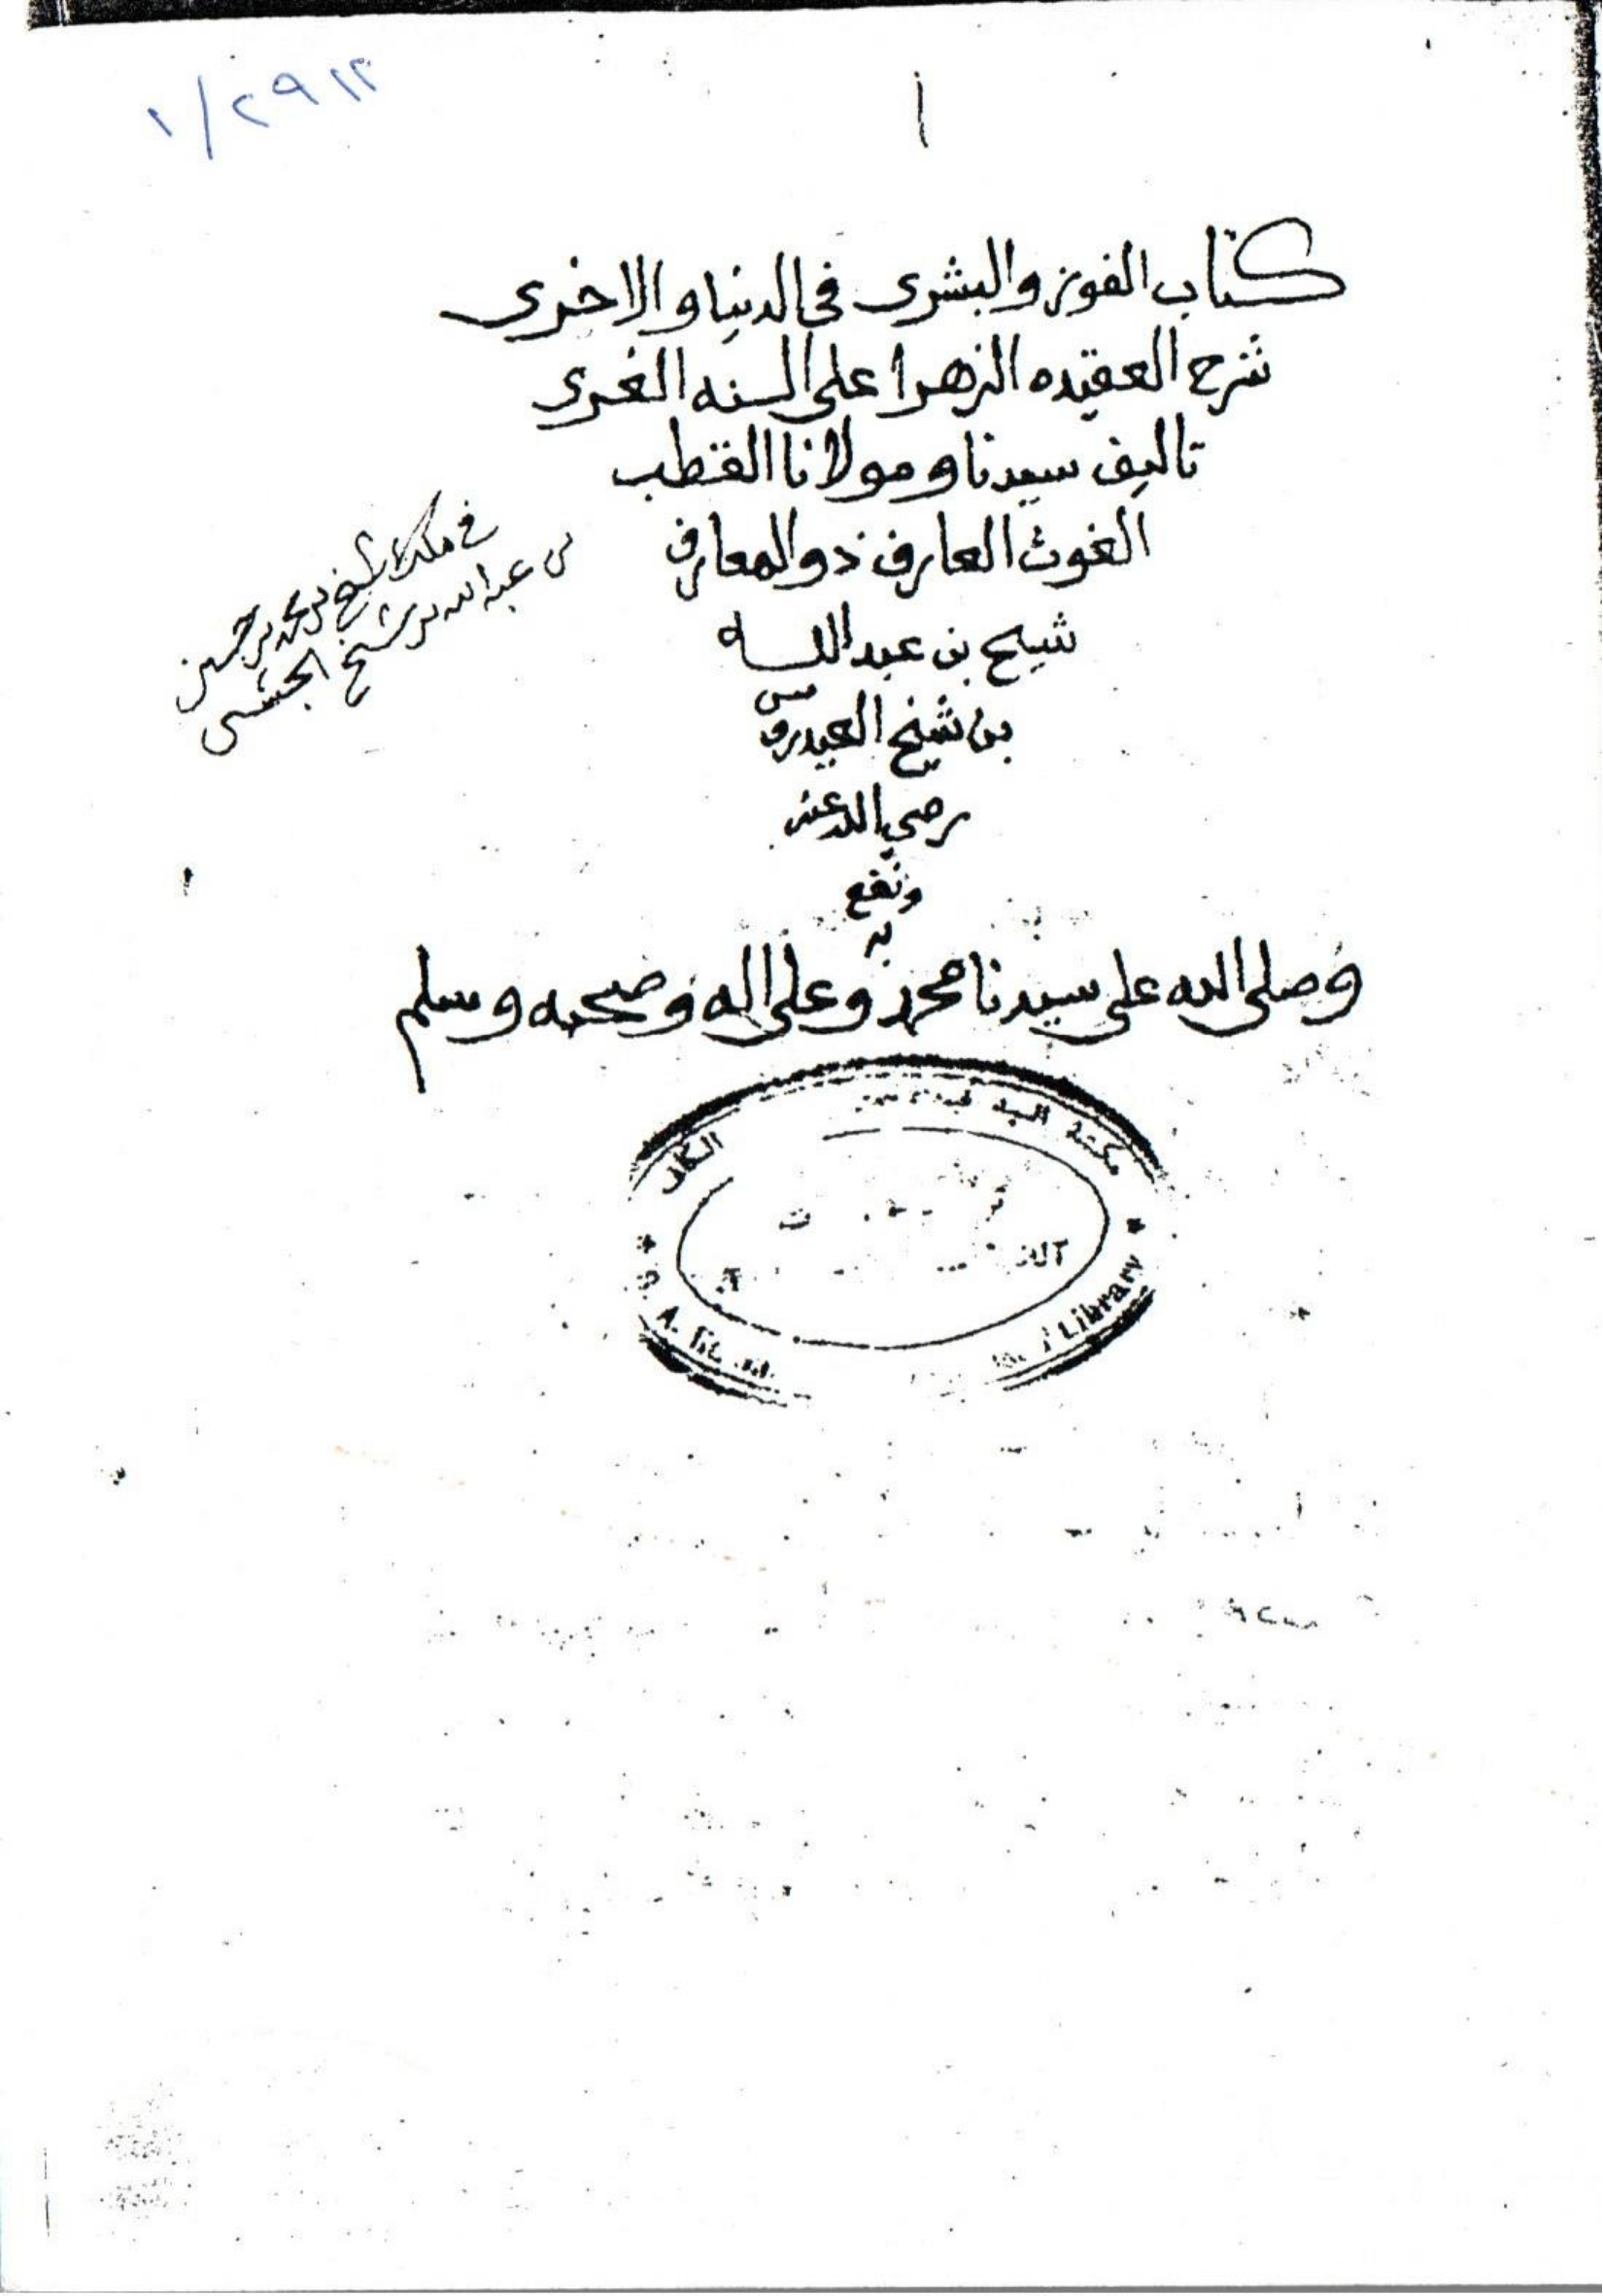 ٢٩١٢/١
١
كتاب الفوز والبشرى في الدنيا والاخرى
شرح العقيده الزهرا على السنه الغرى
تاليف سيدنا ومولانا القطب
الغوث العارف ذو المعارف
شيخ بن عبدالله
بن شيخ العيدروس
رضي الله عنه
ونفع
به
وصلى الله على سيدنا محمد وعلى اله وصحبه وسلم
في ملك شيخ بن محمد بن حسين
بن عبد الله بن شيخ الحبشي
مكتبة
الكاف
A.
Library